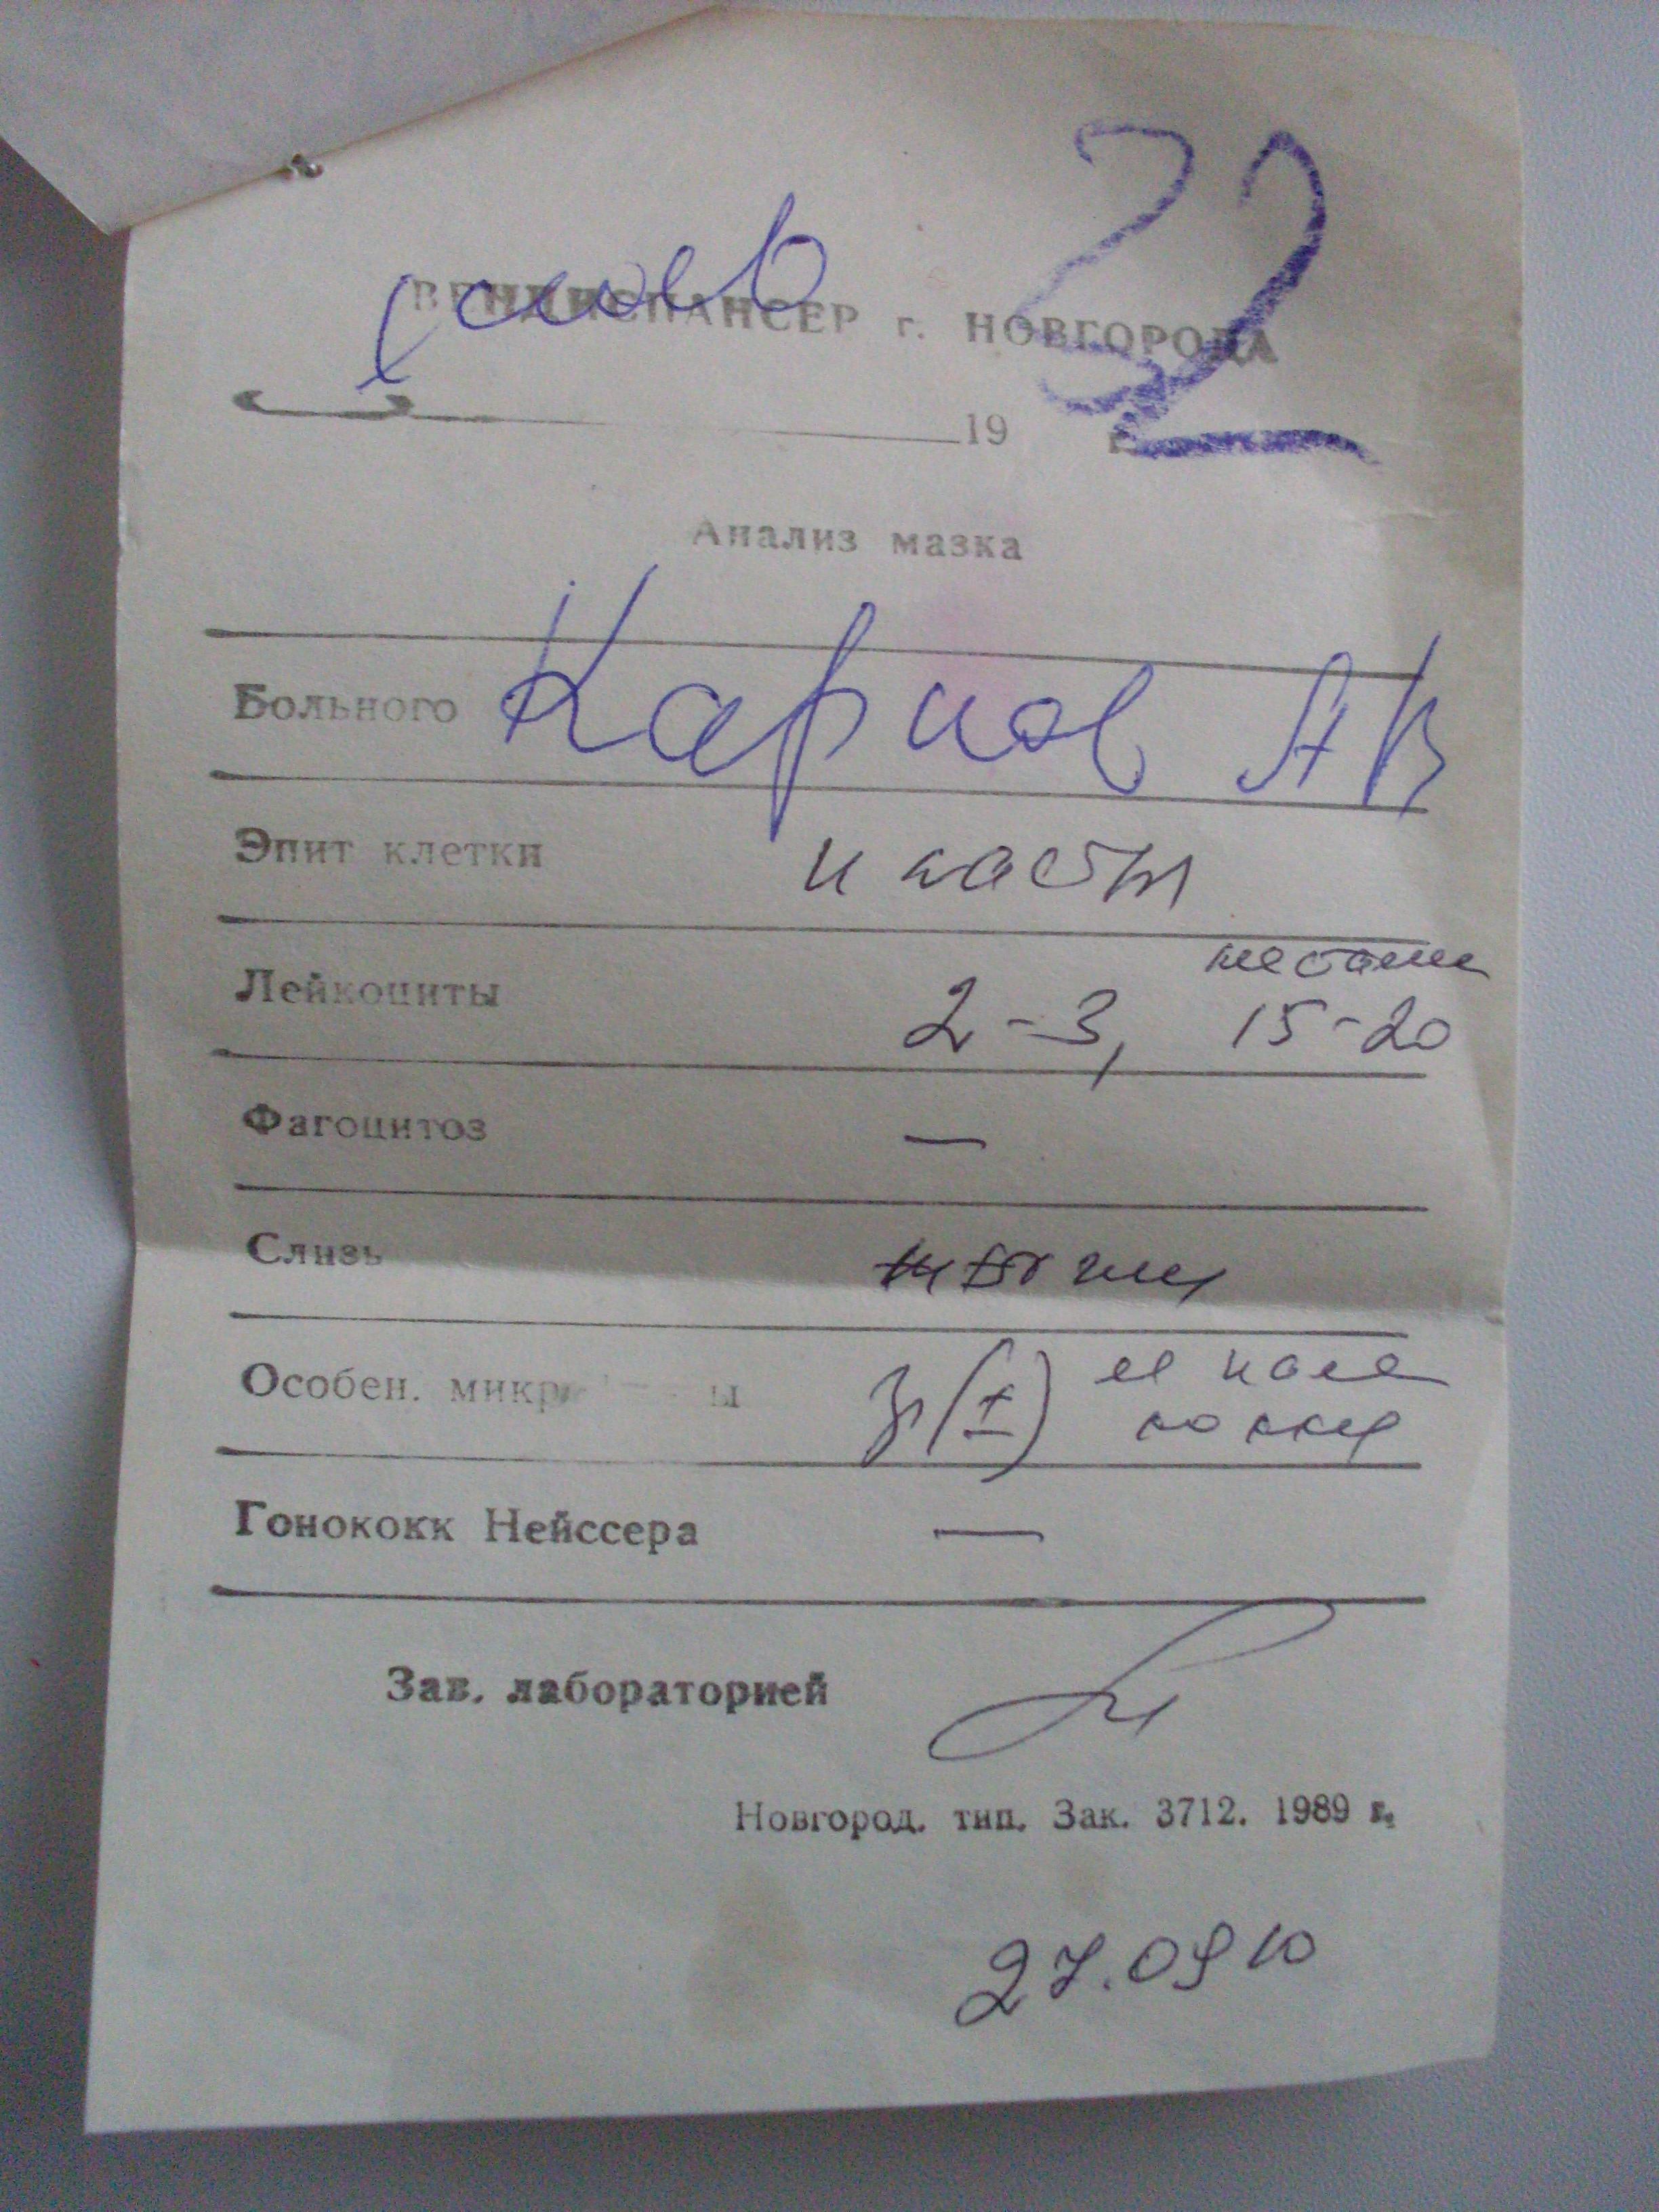 ВЕНДИСПАНСЕР г. НОВГОРОДА
22
19 г.
Анализ мазка
Больного Карпов АВ
Эпит клетки пласты
местами
Лейкоциты 2-3, 15-20
Фагоцитоз —
Слизь тяжи
Особен. микр ы гр(±)
кокки
Гонококк Нейссера —
Зав. лабораторией
Новгород. тип. Зак. 3712. 1989 г.
27.09 10